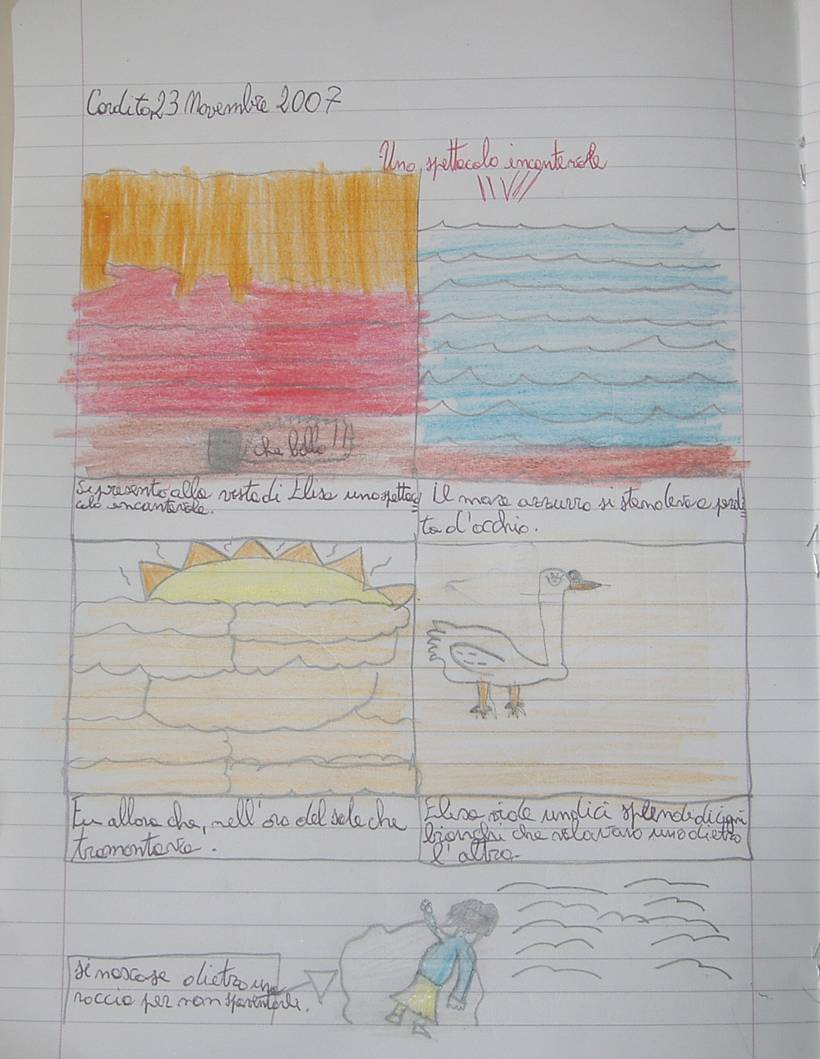 Cardito, 23 Novembre 2007
Uno spettacolo incantevole
che bello!!
Si presentò alla vista di Elisa uno spettac
olo incantevole.
Il mare azzurro si stendeva a perdi
ta d'occhio.
Fu allora che, nell'oro del sole che
tramontava.
Elisa vide undici splendidi cigni
bianchi che volavano uno dietro
l'altro.
Si nascose dietro una
roccia per non spaventarli.